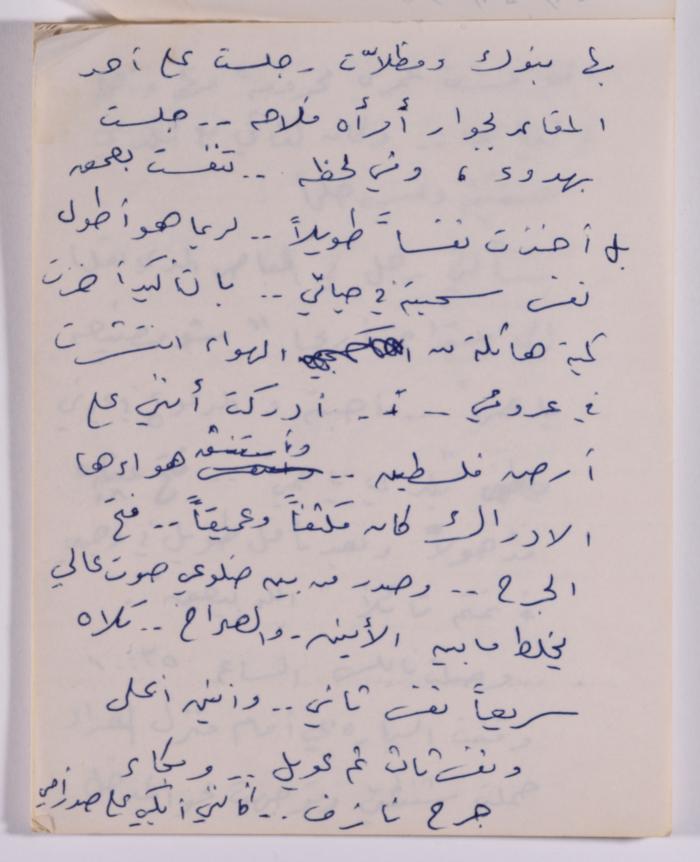 بها بنوك ومظلاّت . جلست على أحد
المقاعد بجوار أمرأه فلاحه .. جلست
بهدوء ، وفي لحظه .. تنفست بعمق
بل أخذت نفساً طويلاً .. لربما هو أطول
نفس سحبته في حياتي .. بالتأكيد أخذت
كمية هائلة من الهواء انتشرت
في عروقي .. أدركت أنني على
أرض فلسطين .. وأستنشق هواءها
الادراك كان مكثفاً وعميقاً .. فتح
الجرح .. وصدر من بين ضلوعي صوت عالي
يخلط ما بين الأنين . والصراخ .. تلاه
سريعاً نفس ثاني .. وانين أعلى
ونفس ثالث ثم عويل .. وبكاء
جرح نازف .. كأنني أبكي على صدر أمي